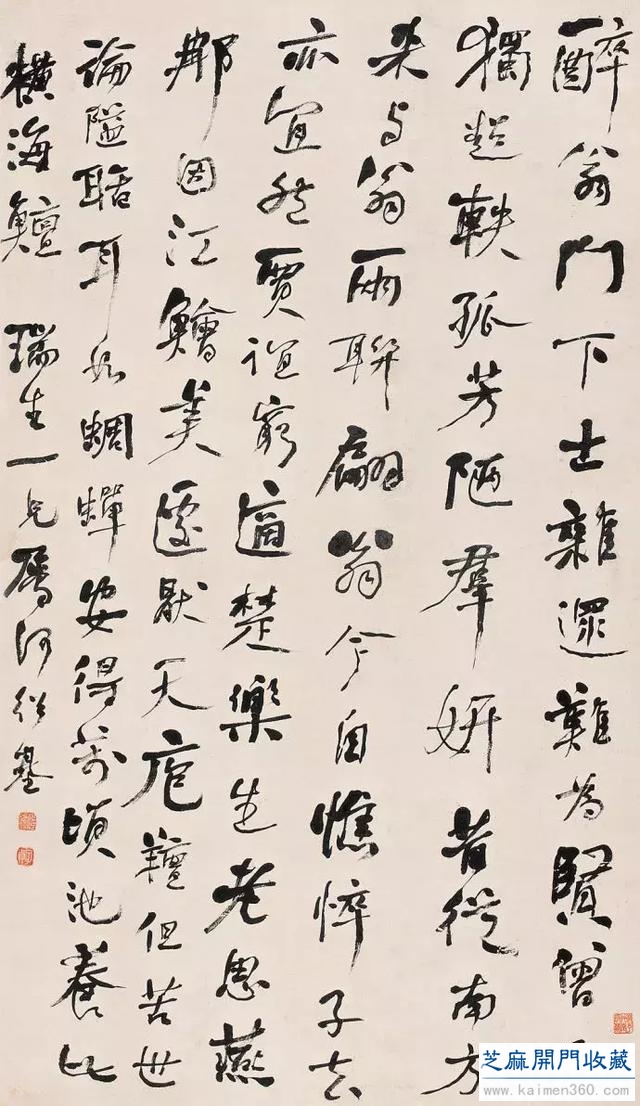 醉翁門下士雜遝難為賢曾
獨超軼孤芳陋羣妍昔從南方
来与翁兩聯翩翁今自憔悴子去
亦宜然賈誼窮適楚樂生老思燕
那因江鱠美遽厭天庖羶但苦世
論隘聒耳如蜩蟬安得萬頃池養此
橫海鱣 瑞生一兄屬何紹基
芝麻開門收藏
www.kaimen360.com